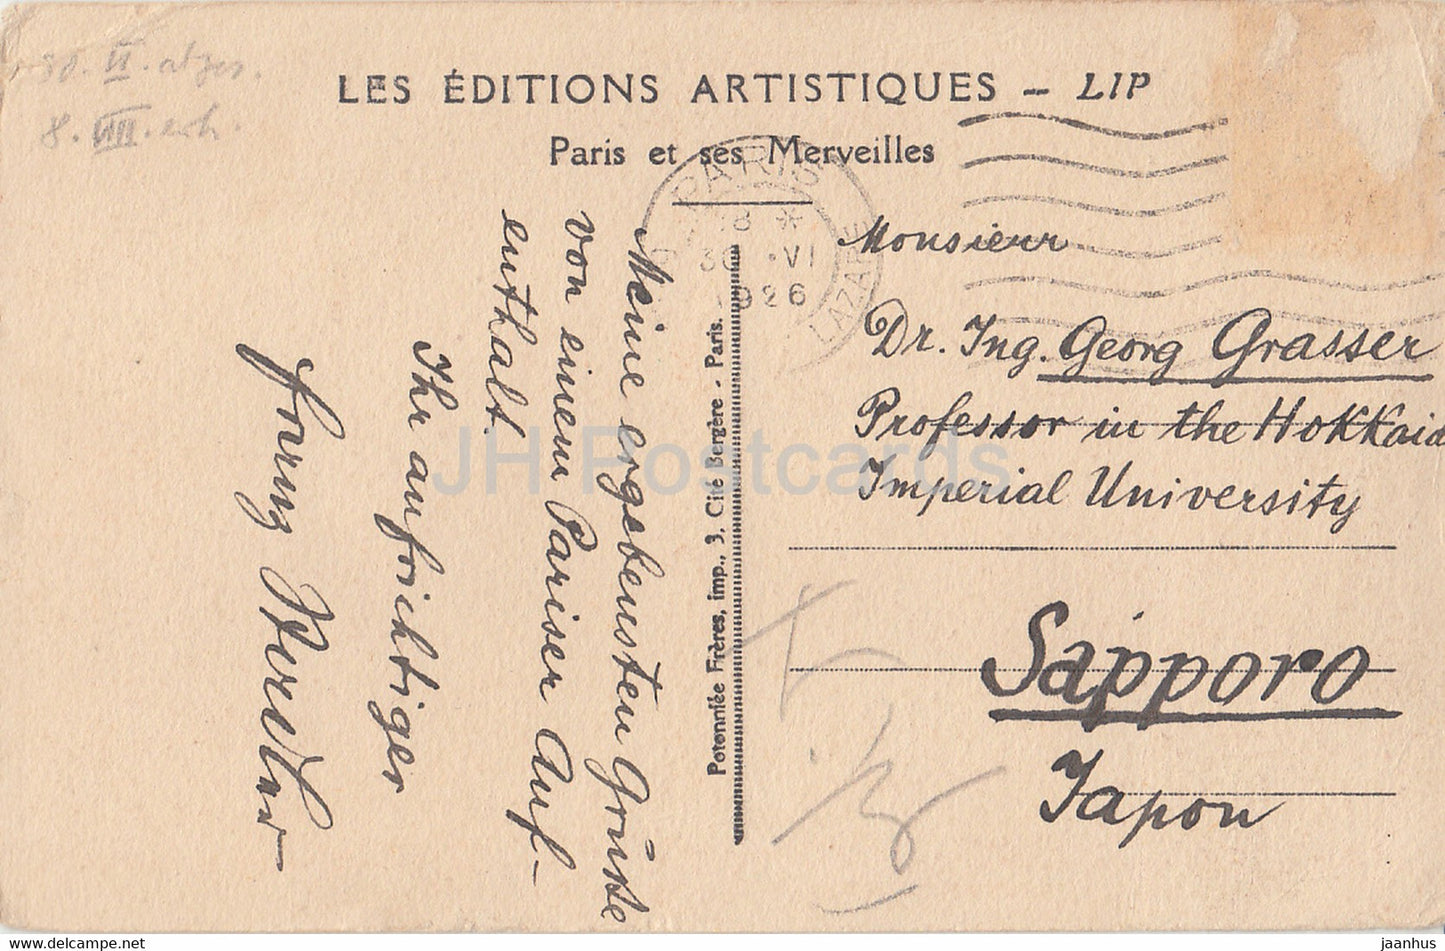 30. VI. abges.
8. VIII. erh.
LES ÉDITIONS ARTISTIQUES – LIP
Paris et ses Merveilles
PARIS
LAZARE
18 *
30 • VI
1926
Meine ergebensten Grüsse
von einem Pariser Auf-
enthalt.
Ihr aufrichtiger
Potonniée Frères, imp., 3, Cité Bergère - Paris.
Monsieur
Dr. Ing. Georg Grasser
Professor in the Hokkaid
Imperial University
Sapporo
Japon
JH Postcards
jaanhus
https://www.delcampe.net